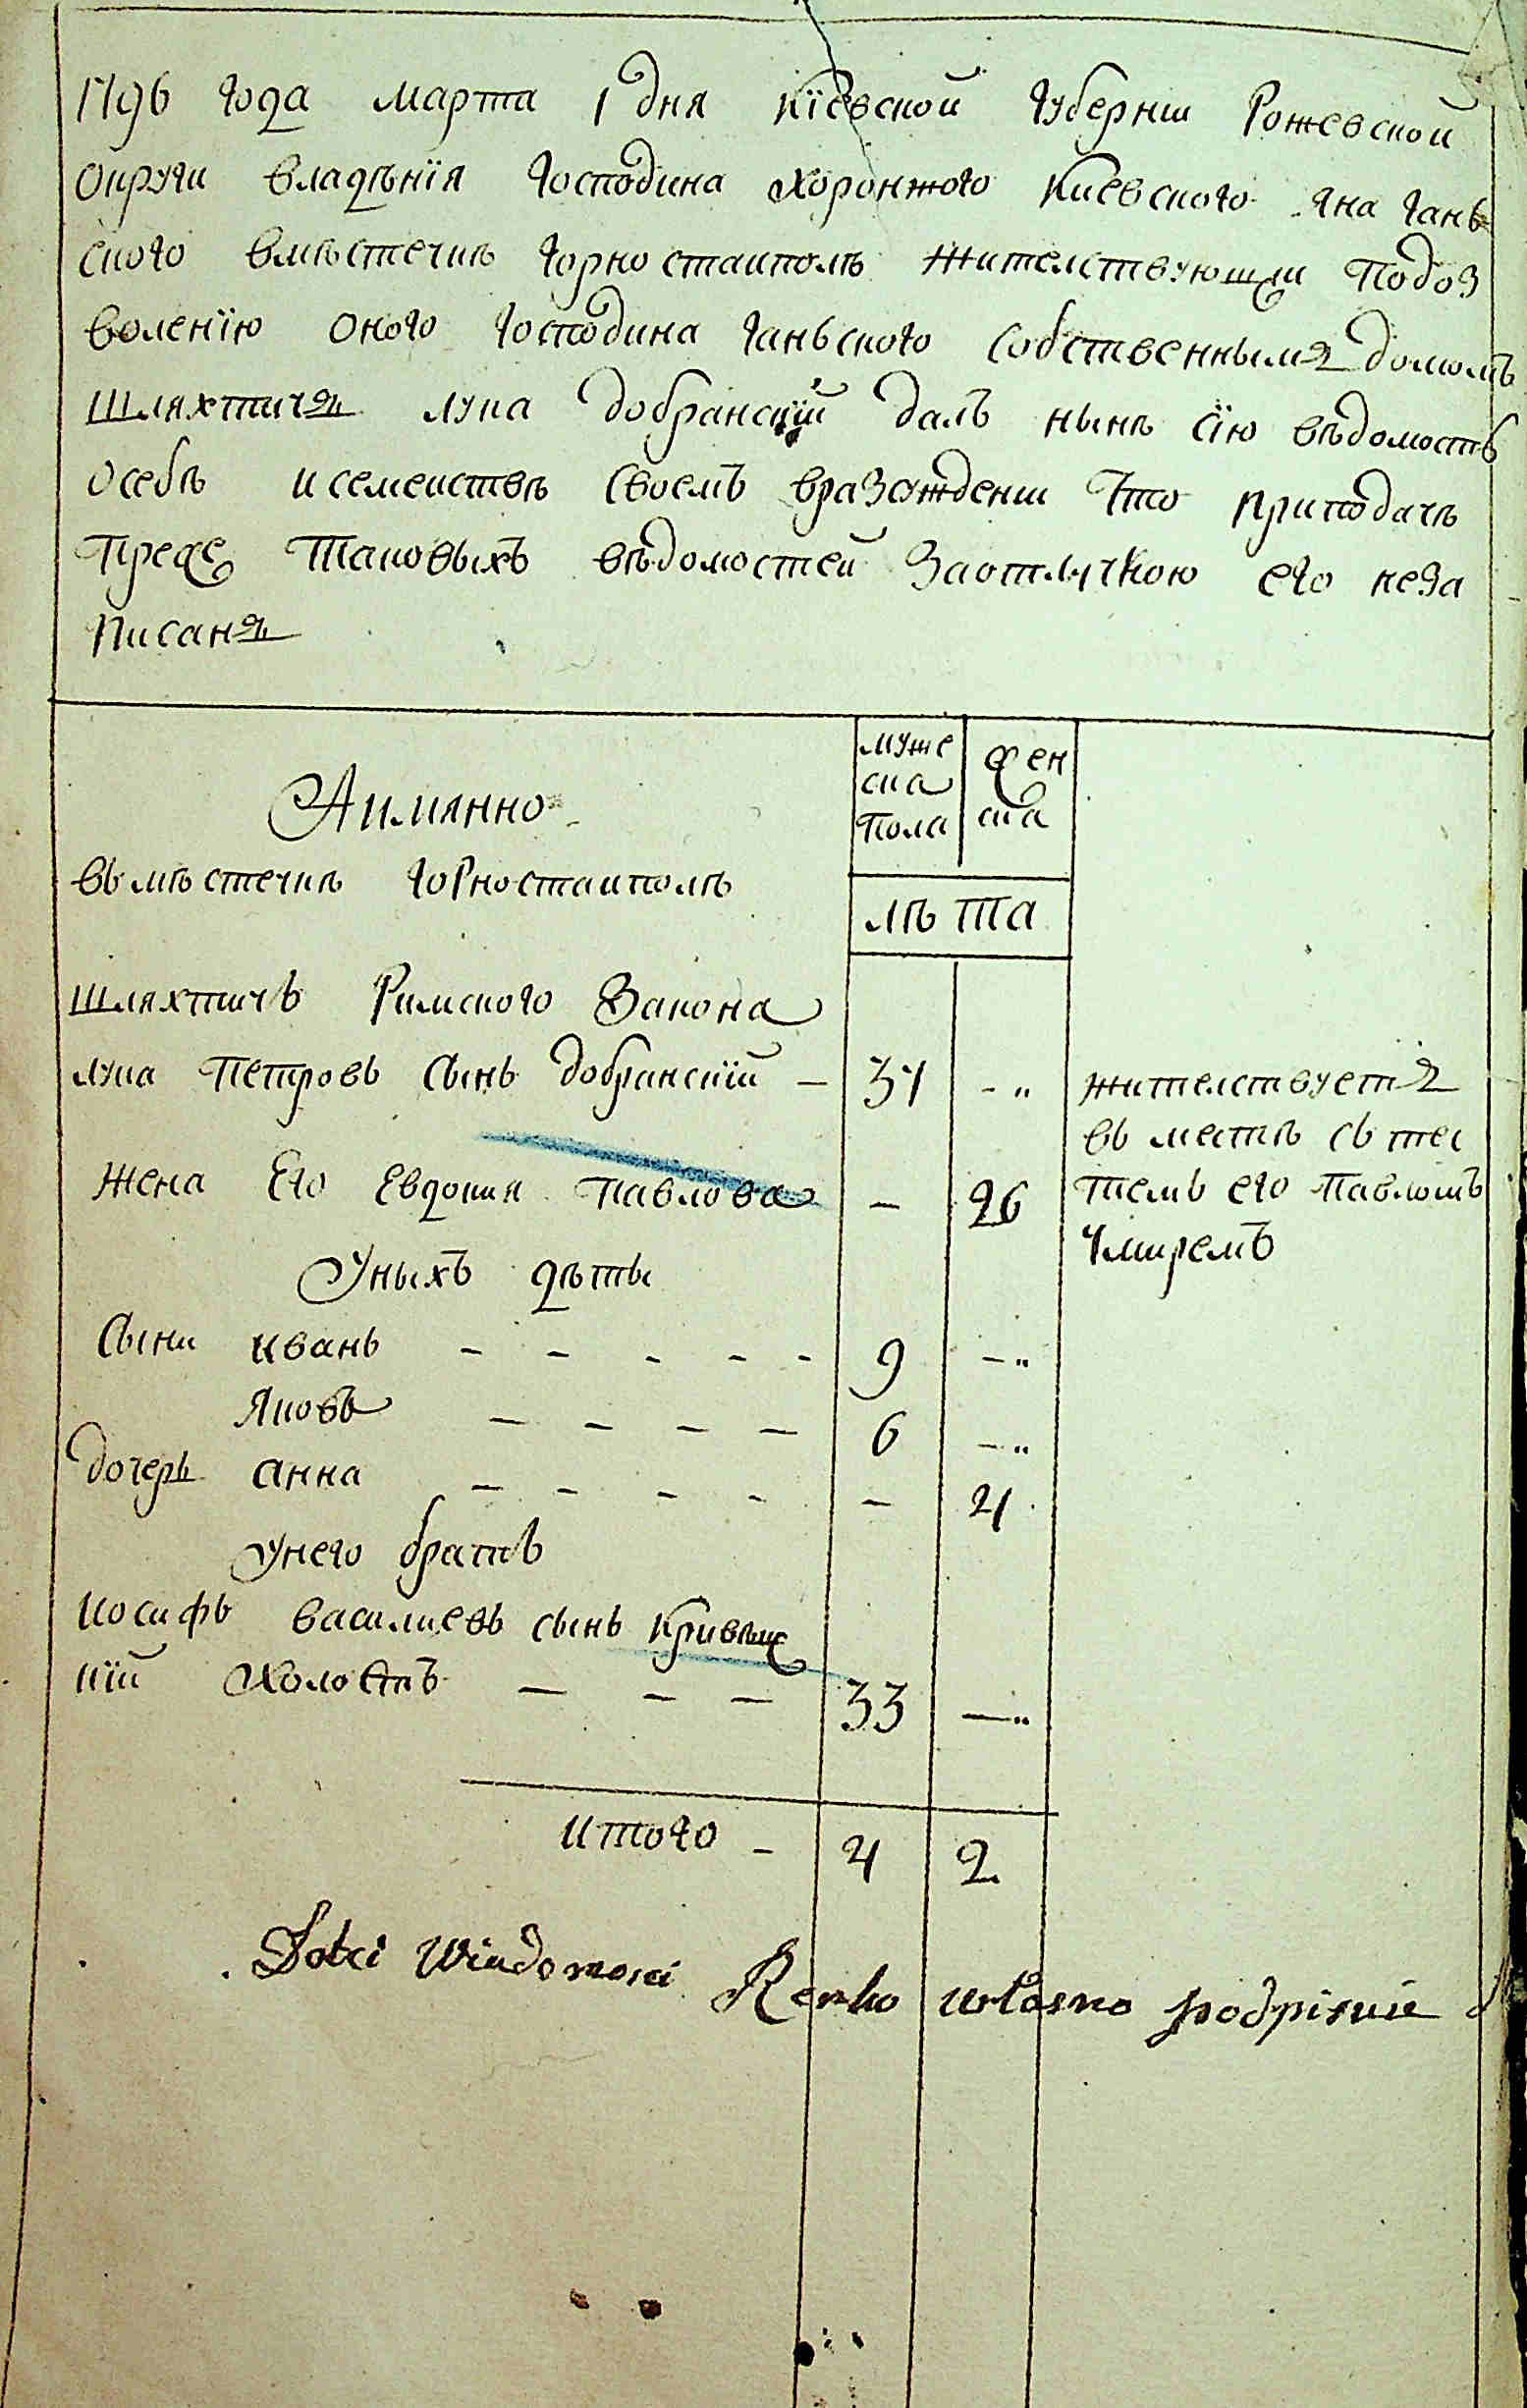 1796 года марта 1 дня Кїевской губернии Рожевской
округи владѣнїя господина хоронжого Киевского Яна Гань
ского вмѣстечкѣ Горностаиполѣ жителствующи подоз
воленїю оного господина Ганьского собственнымъ домомъ
шляхтичъ лука добранскїй далъ нынѣ сїю вѣдомость
осебѣ исемеиствѣ своемъ вразсуждении что приподачѣ
преже таковыхъ вѣдомостей заотлучкою его неза
писанъ
Аимянно
муже
ска
пола
жен
ска
вьмѣстечкѣ горностаиполѣ
лѣта
шляхтичь Римского Закона
лука Петровь сынь добранскїй – 34 - "
жителствуетъ
вь местѣ сь тес
темь его Павломъ
жена Его Евдокия Павлова – 26
Уныхъ дѣты
Сыни ивань - - - - - 9 - "
Яковъ - - - - 6 - "
дочерь анна - - - - – 4
унего братъ
иосифь василиевь сынь Кривиц
кїй холостъ - - - 33 - "
итого - 4 2
Dotei Wiadomosci Renko własno podpisuie